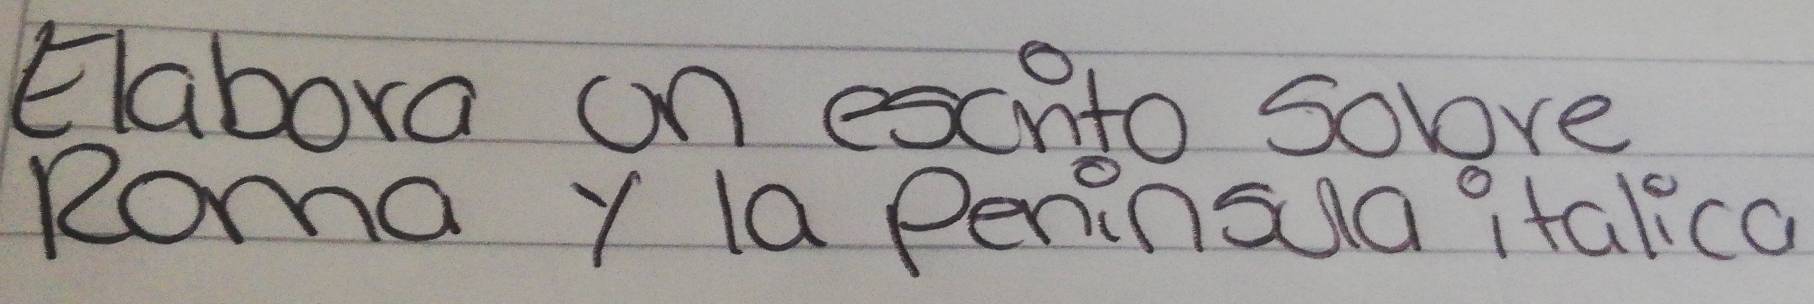 Elabora un escrito sobre
Roma y la Peninsula italica